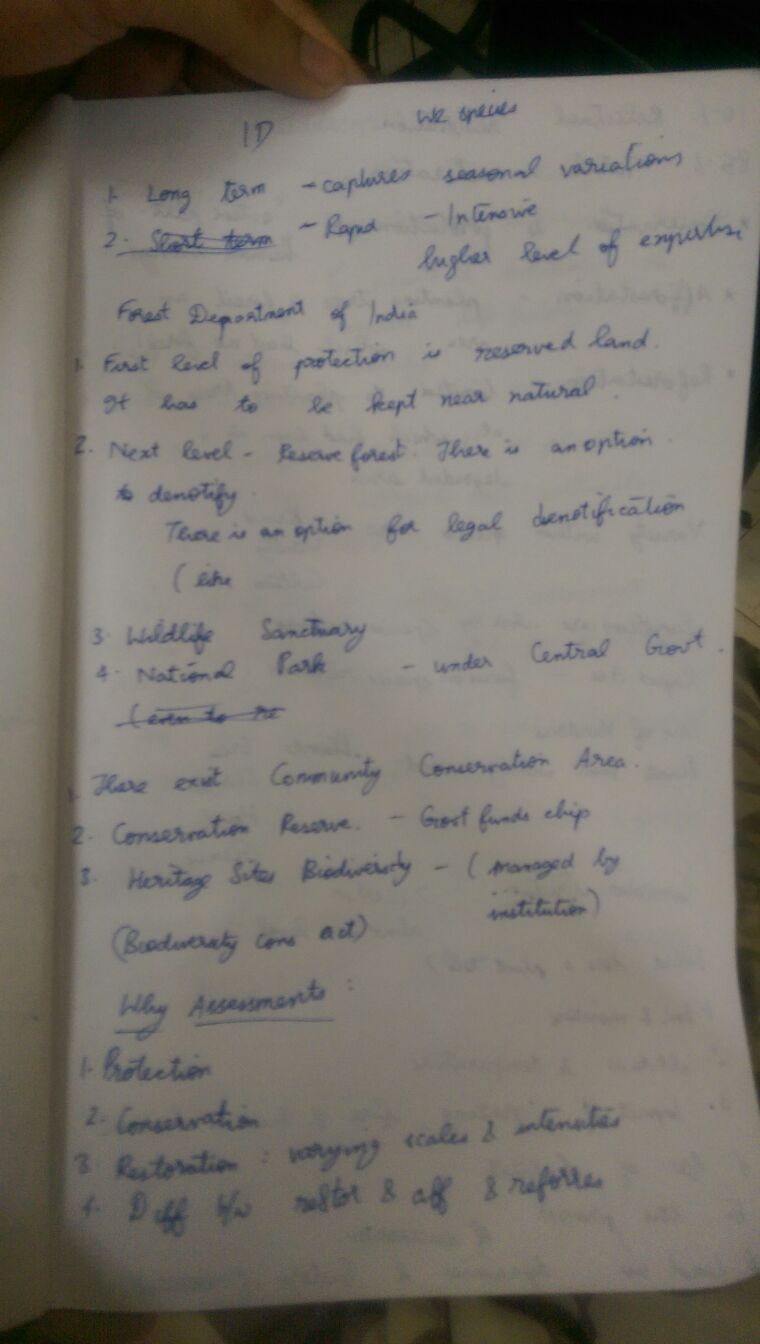 1D
species
1. Long term - captures seasonal variations
2. Short term - Rapid - Intensive
higher level of expertise
Forest Department of India
1. First level of protection is reserved land.
It has to be kept near natural.
2. Next level - Reserve forest. There is an option
to denotify.
There is an option for legal denotification
(
3. Wildlife Sanctuary
4. National Park - under Central Govt.
(even to
1. There exist Community Conservation Area.
2. Conservation Reserve. - Govt funds chip
3. Heritage Sites Biodiversity - (managed by
institution)
(Biodiversity cons act)
Why Assessments:
1. Protection
2. Conservation
3. Restoration: varying scales & intensities
4. Diff b/w restor & aff & referres